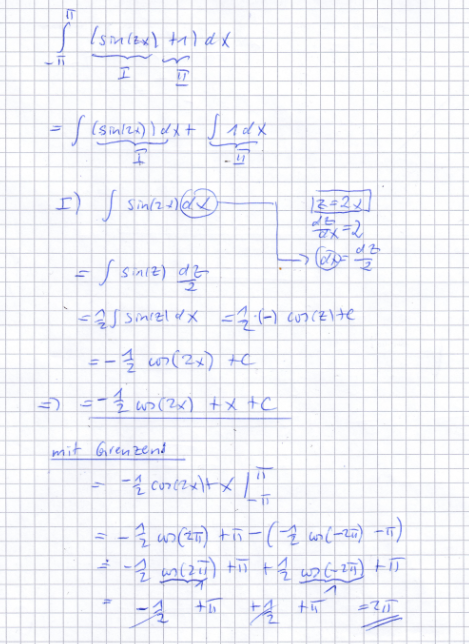 ∫_{-π}^{π} (sin(2x) + 1) dx
I II
= ∫ (sin(2x)) dx + ∫ 1 dx
I II
I) ∫ sin(2x) dx z = 2x
dz/dx = 2
dx = dz/2
= ∫ sin(z) dz/2
= 1/2 ∫ sin(z) dx = 1/2 · (-) cos(z) + c
= - 1/2 cos(2x) + c
=> = - 1/2 cos(2x) + x + C
mit Grenzen
= - 1/2 cos(2x) + x |_{-π}^{π}
= - 1/2 cos(2π) + π - (- 1/2 cos(-2π) - π)
= - 1/2 cos(2π) + π + 1/2 cos(-2π) + π
1 1
= - 1/2 + π + 1/2 + π = 2π